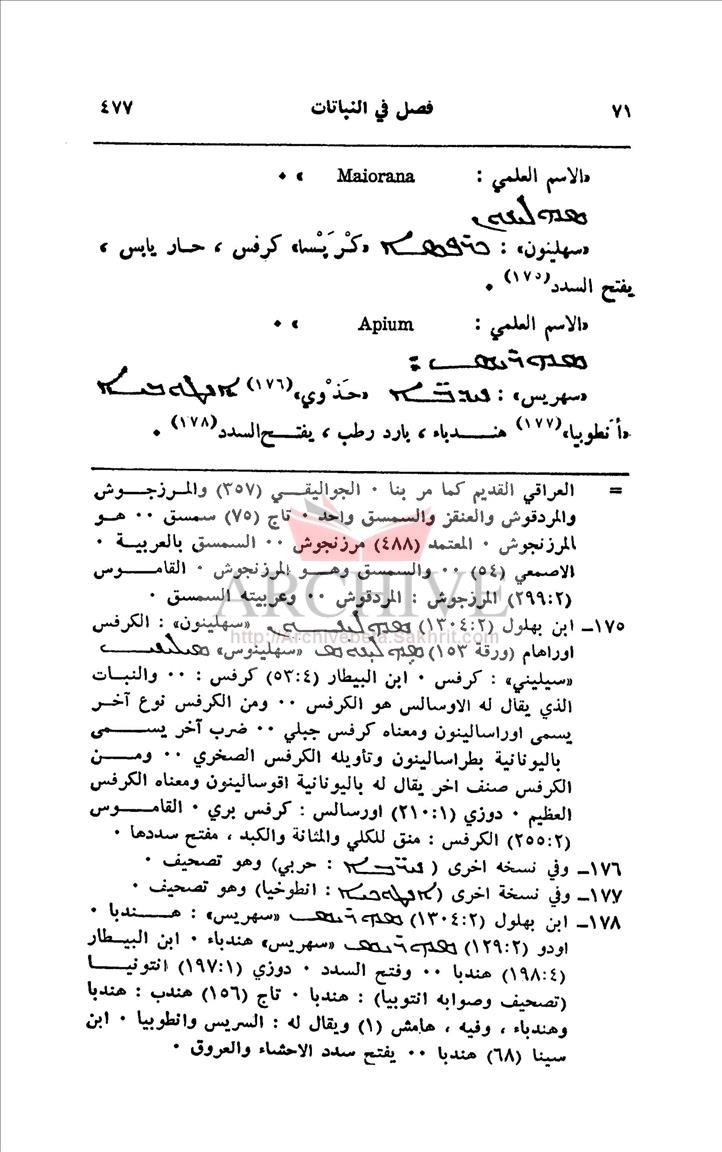 ٧١ فصل في النباتات ٤٧٧
«الاسم العلمي : Maiorana » ٠
«سهلينون» : «كرْ پَسْا» كرفس ، حار يابس ،
يفتح السدد(١٧٥) ٠
«الاسم العلمي : Apium » ٠
«سهريس» : «حَذْوي»(١٧٦)
«أَنطوبيا»(١٧٧) هندباء ، بارد رطب ، يفتح السدد(١٧٨) ٠
= العراقي القديم كما مر بنا ٠ الجواليقي (٣٥٧) والمرزجوش
والمردقوش والعنقز والسمسق واحد ٠ تاج (٧٥) سمسق ٠٠ هو
المرزنجوش ٠ المعتمد (٤٨٨) مرزنجوش ٠٠ السمسق بالعربية ٠
الاصمعي (٥٤) ٠٠ والسمسق وهو المرزنجوش ٠ القاموس
(٢٩٩:٢) المرزجوش : المردقوش ٠٠ وعربيته السمسق ٠
ARCHIVE
http://Archivebeta.Sakhrit.com
١٧٥ـ ابن بهلول (١٣٠٤:٢) «سهلينون» : الكرفس
اوراهام (ورقة ١٥٣) «سهلينوس»
«سيليني» : كرفس ٠ ابن البيطار (٥٣:٤) كرفس : ٠٠ والنبات
الذي يقال له الاوسالس هو الكرفس ٠٠ ومن الكرفس نوع آخر
يسمى اوراسالينون ومعناه كرفس جبلي ٠٠ ضرب آخر يسمى
باليونانية بطراسالينون وتأويله الكرفس الصخري ٠٠ ومن
الكرفس صنف اخر يقال له باليونانية اقوسالينون ومعناه الكرفس
العظيم ٠ دوزي (٢١٠:١) اورسالس : كرفس بري ٠ القاموس
(٢٥٥:٢) الكرفس : منق للكلي والمثانة والكبد ، مفتح سددها ٠
١٧٦ـ وفي نسخه اخرى ( : حربي) وهو تصحيف ٠
١٧٧ـ وفي نسخة اخرى ( : انطوخيا) وهو تصحيف ٠
١٧٨ـ ابن بهلول (١٣٠٤:٢) «سهريس» : هندبا ٠
اودو (١٢٩:٢) «سهريس» هندباء ٠ ابن البيطار
(١٩٨:٤) هندبا ٠٠ وفتح السدد ٠ دوزي (١٩٧:١) انتونيا
(تصحيف وصوابه انتوبيا) : هندبا ٠ تاج (١٥٦) هندب : هندبا
وهندباء ، وفيه ، هامش (١) ويقال له : السريس وانطوبيا ٠ ابن
سينا (٦٨) هندبا ٠٠ يفتح سدد الاحشاء والعروق ٠